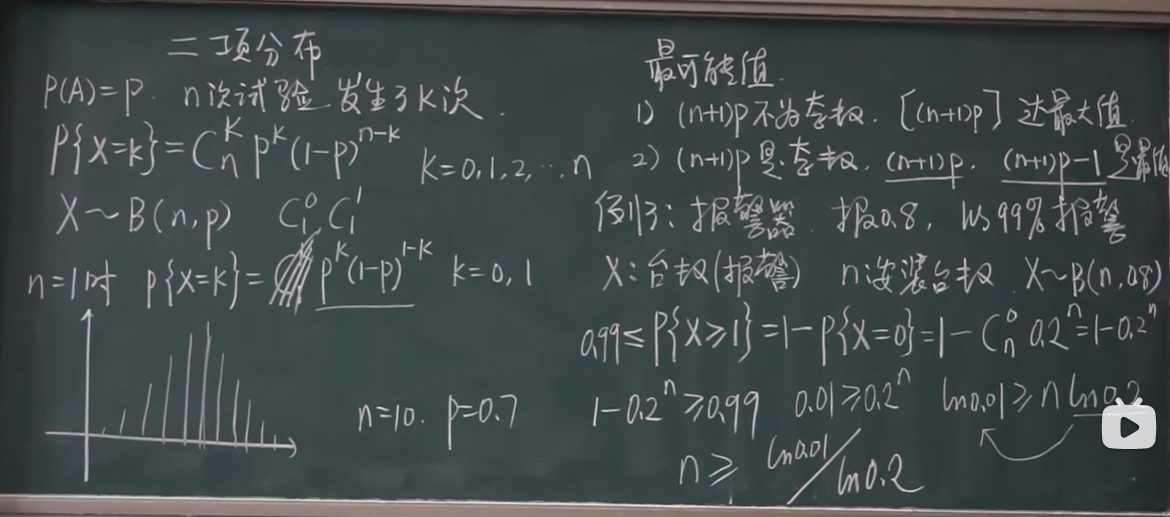 二项分布
P(A)=p. n次试验 发生了k次.
P{X=k}=C_n^k p^k(1-p)^{n-k} k=0,1,2,…n
X~B(n,p) C_1^0 C_1^1
n=1时 P{X=k}= p^k(1-p)^{1-k} k=0,1
n=10. p=0.7
最可能值.
1) (n+1)p不为整数. [(n+1)p] 达最大值.
2) (n+1)p是整数, (n+1)p, (n+1)p-1 是最值
例3: 报警器 报0.8, 以99%报警
X: 台数(报警) n:安装台数 X~B(n,0.8)
0.99≤P{X≥1}=1-P{X=0}=1-C_n^0 0.2^n=1-0.2^n
1-0.2^n≥0.99 0.01≥0.2^n ln0.01≥n ln0.2
n≥ ln0.01/ln0.2